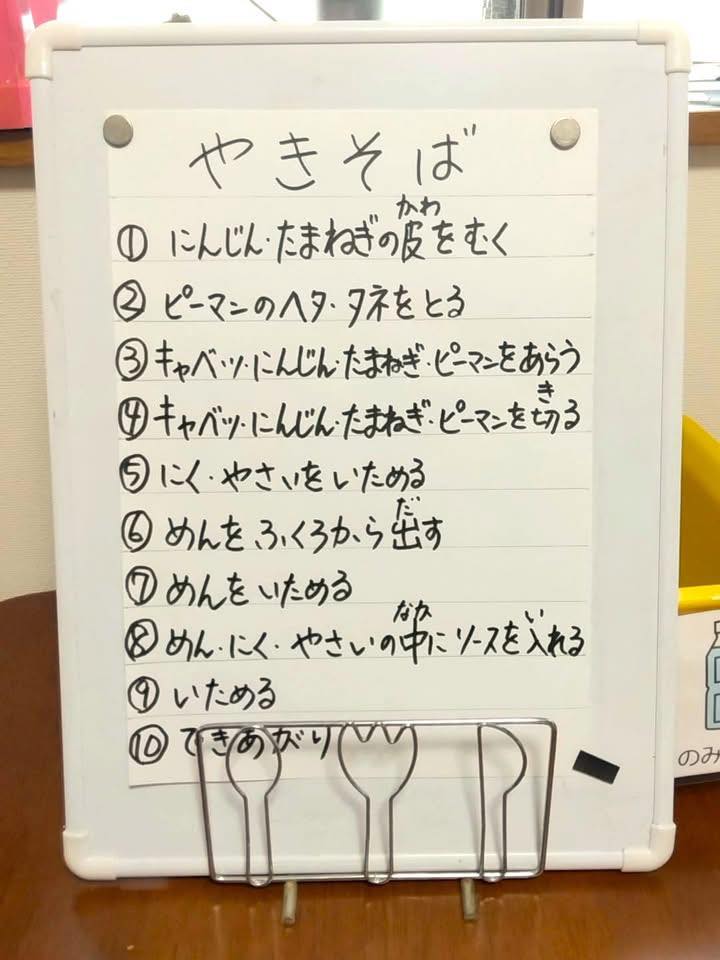 やきそば
① にんじん・たまねぎの皮をむく
かわ
② ピーマンのヘタ・タネをとる
③ キャベツ・にんじん・たまねぎ・ピーマンをあらう
④ キャベツ・にんじん・たまねぎ・ピーマンを切る
き
⑤ にく・やさいをいためる
⑥ めんをふくろから出す
だ
⑦ めんをいためる
⑧ めん・にく・やさいの中にソースを入れる
なか い
⑨ いためる
⑩ できあがり
のみ